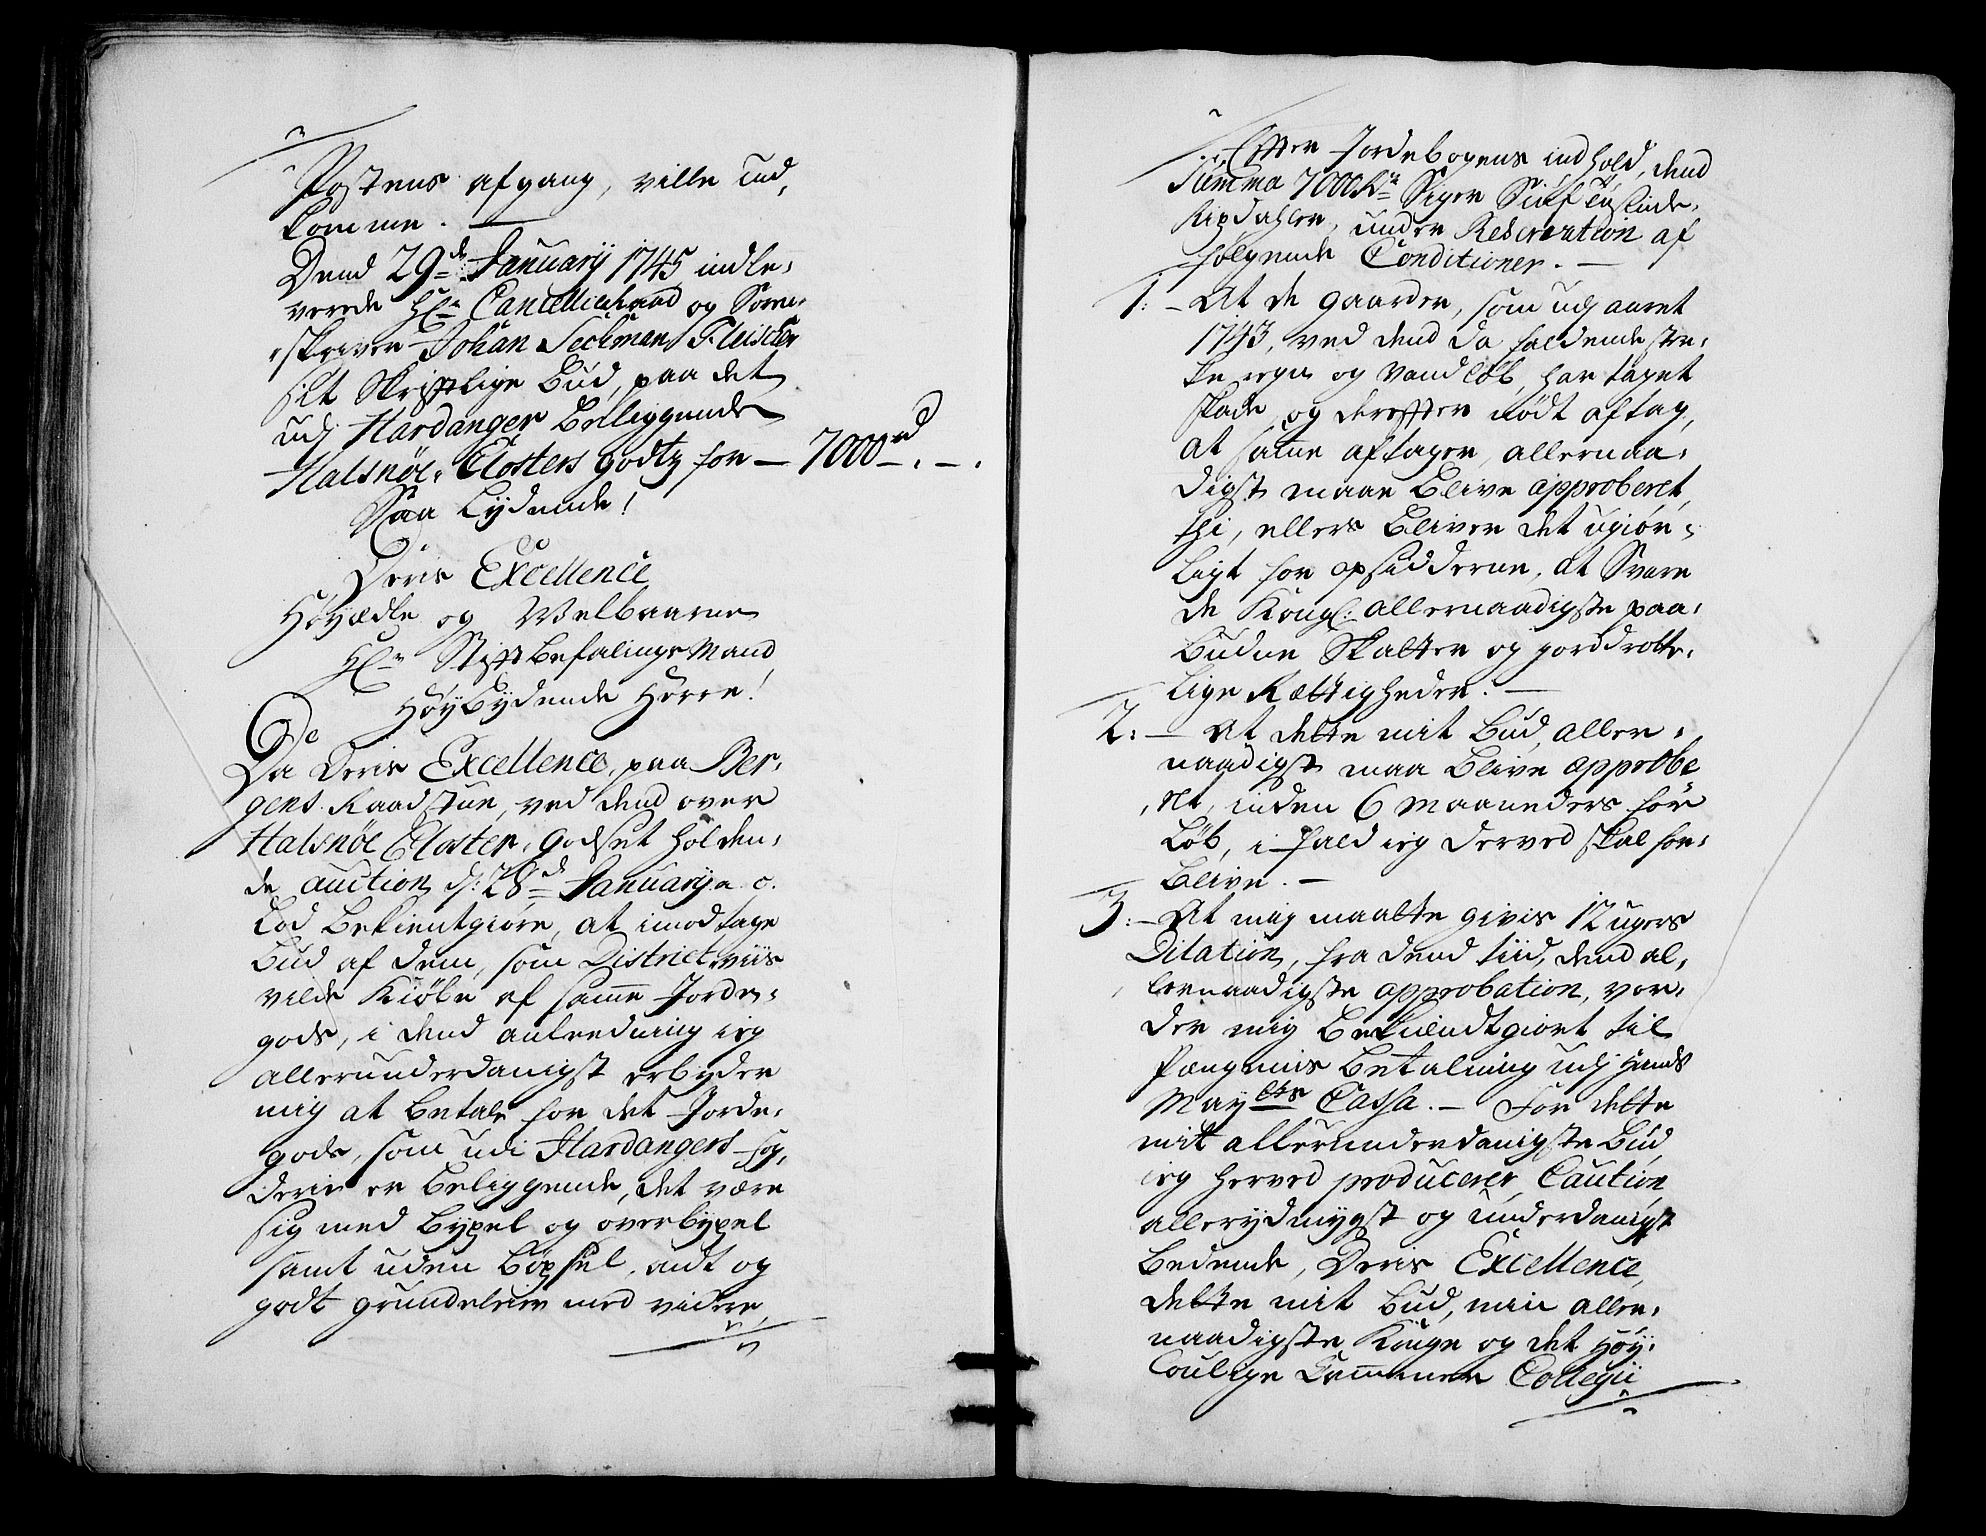 Postens afgang, ville ind,
komme. —
Dend 29de January 1745 indle,
verede Hr Cancellieraad og Soren,
skriver Johan Seckman Fleischer
sit Skriftlige Bud, paa det
udj Hardanger Beliggende
Halsnöe Closters Godtz for — 7000rd —. —.
Saa Lydende!
Deris Excellence
Höyædle og Welbaarne
Hr StiftBefalingsMand
HöyBydende Herre!
Da Deris Excellence, paa Ber,
gens Raadstue, ved dend over
Halsnöe Closter, Godset holden,
de auction, d: 28de January a. c.
Lod Bekientgiöre, at imodtage
Bud af dem, som Districtviis
vilde Kiöbe af samme Jorde,
gods, i dend anledning ieg
allerunderdanigst erbyder
mig at Betale for det Jorde,
gods, som udi Hardangers fog,
derie er Beliggende, det være
sig med Bygsel og overbygsel
samt uden Böxsel, ondt og
godt grundeleie med videre,
Efter Jordebogens indhold, dend
Summa 7000 Rdr Siger Siuf Tusinde,
Rixdahler, under Reservation af
fölgende Conditioner. —
1: – At de gaarder, som udj aaret
1743, ved dend da faldende stre,
ke regn og Vandlöb, har taget
skade, og derefter nödt aftag,
at samme aftager, allernaa,
digst maae Blive approberet,
thi, ellers Bliver det ugiör,
ligt for opsidderne, at Svare
de Kongl: allernaadigste paa,
Budne Skatter og jorddrotte,
lige Rettigheder. —
2: — At dette mit Bud, aller,
naadigst maa Blive approbe
,ret, inden 6 Maaneders for
Löb, i fald ieg derved skal for,
Blive. —
3: – At mig maatte givis 12 ugers
Dilation, fra dend tiid, dend al,
lernaadigste approbation, vor,
der mig Bekiendtgiort til
Pengenis Betaling udj Hands
Mayts Cassa. — For dette
mit allerunderdanigste Bud
ieg herved producerer Caution
allerydmygst og underdanigst
Bedende, Deris Excellence,
dette mit Bud, min aller,
naadigste Konge og det Höy,
Loulige Cammer Collegii